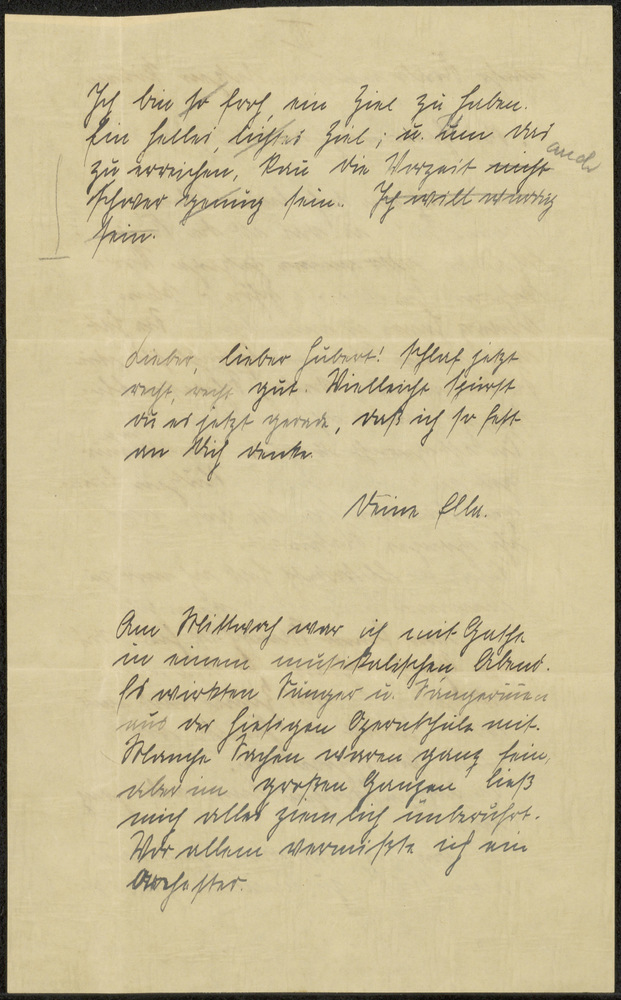 Ich bin so froh, ein Ziel zu haben.
Ein helles, lichtes Ziel; u. um das
zu erreichen, kan die Vorzeit nicht auch
schwer genug sein. Ich will würdig
sein.
Lieber, lieber Hubert! Schlaf jetzt
recht, recht gut. Vielleicht spürst
du es jetzt gerade, daß ich so fest
an Dich denke.
Deine Ella.
Am Mittwoch war ich mit
in einem musikalischen Abend.
Es wirkten Sänger u. Sängerinnen
aus der hiesigen Opernschule mit.
Manche Sachen waren ganz fein,
aber im großen Ganzen ließ
mich alles ziemlich unberührt.
Vor allem vermißte ich ein
Orchester.